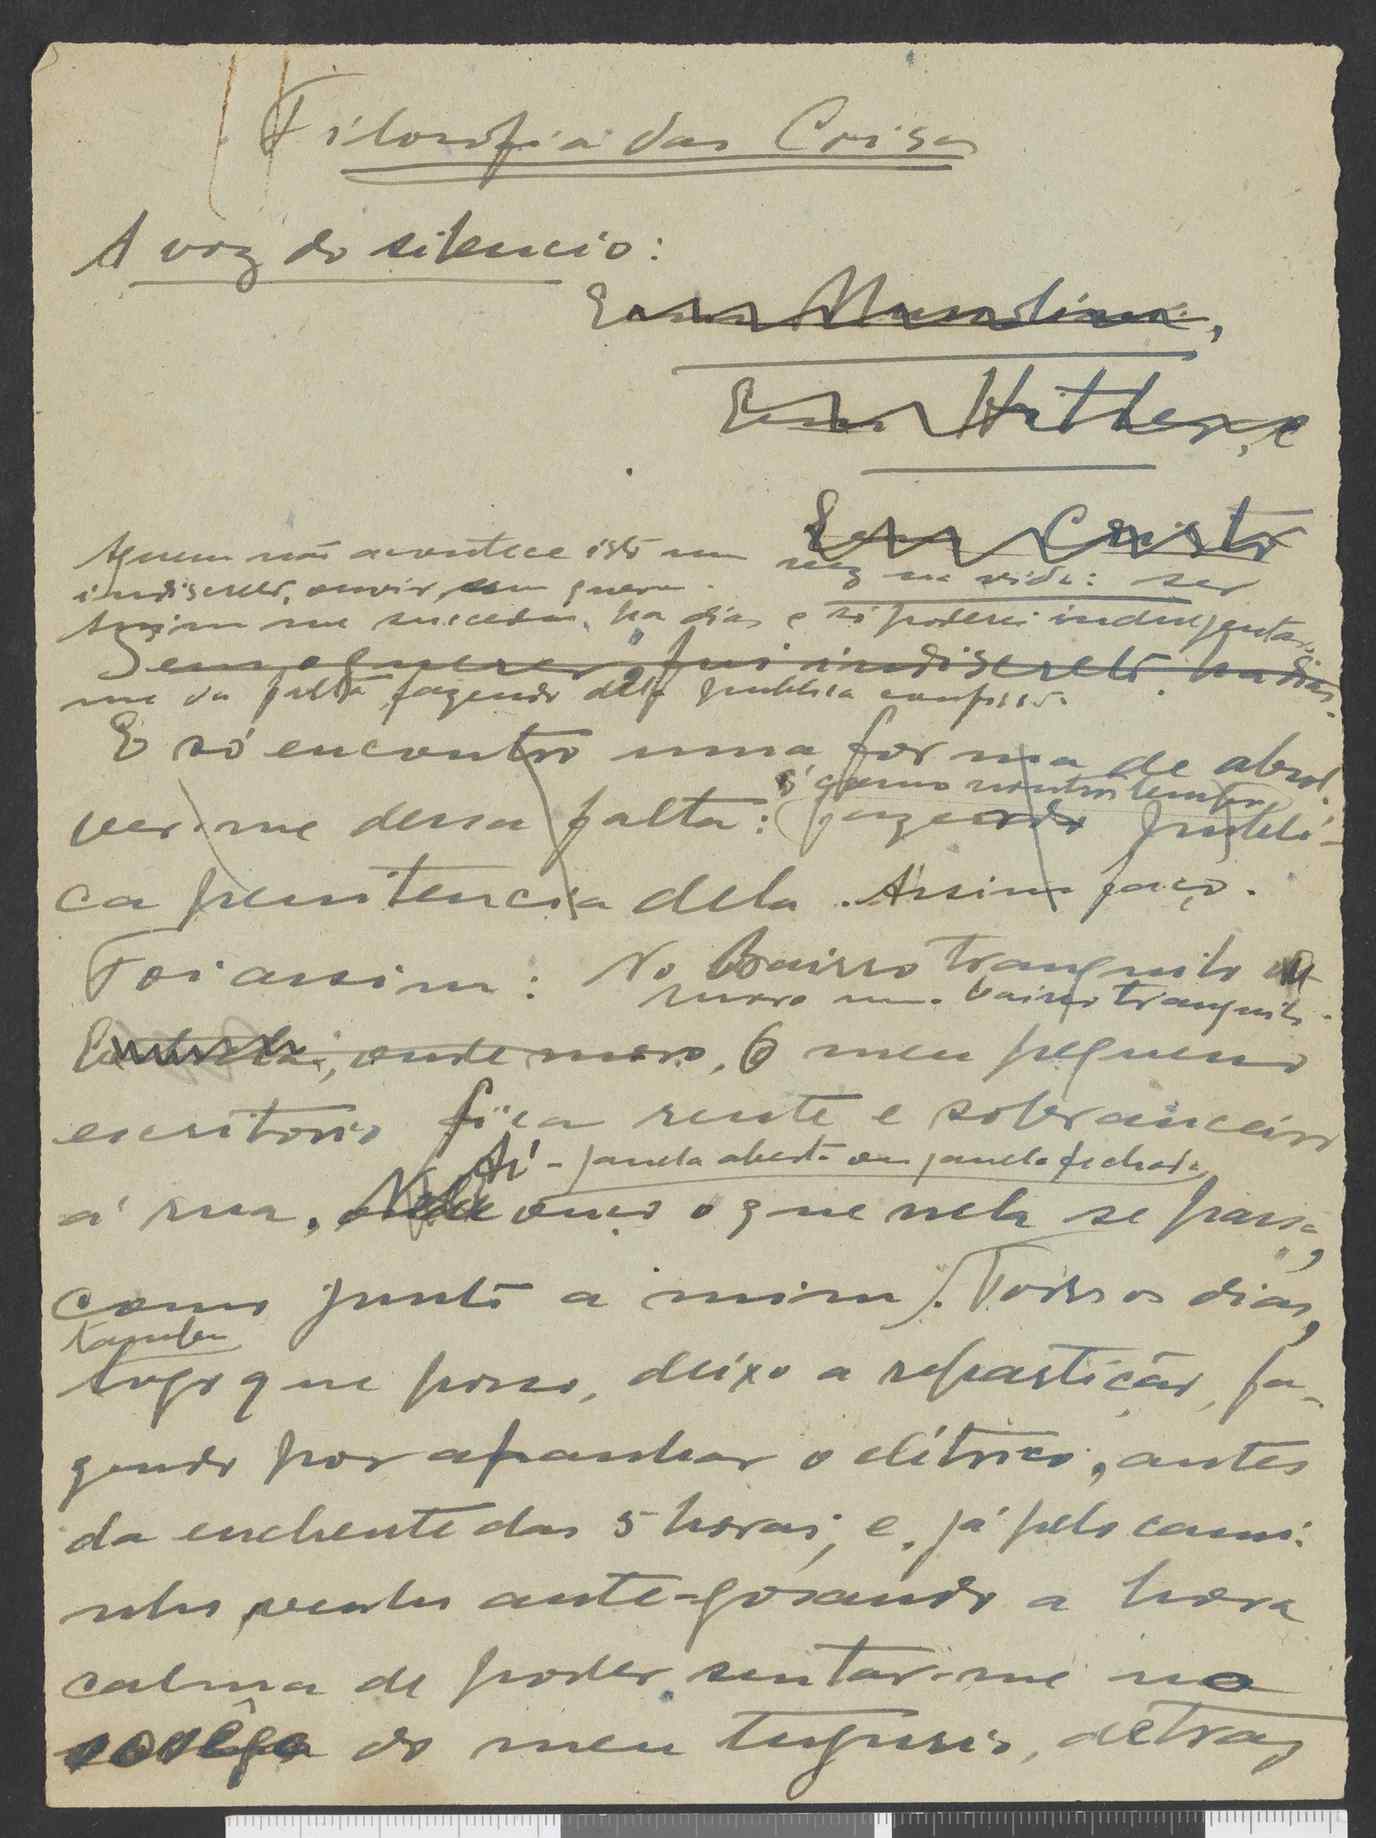 Filosofia das Coisas
A voz do silencio:
Mussolini,
Hitler, e
Cristo
A quem não acontece isto uma vez na vida: ser
indiscreto, ouvir, sem querer.
Assim me sucedeu, ha dias e só poderei
Sem o querer, fui indiscreto ha dias.
me da falta, fazendo dela publica confissão.
E só encontro uma forma de absol-
só como noutros tempos
ver-me dessa falta: fazendo publi-
ca penitencia dela. Assim faço.
Foi assim: No Bairro tranquilo
Moro num bairro tranquilo.
onde moro. O meu pequeno
escritorio fica rente e sobranceiro
Aí - janela aberta ou janela fechada,
á rua, ouço o que nela se passa,
como junto a mim. Todos os dias,
tambem
logo que posso, deixo a repartição, fa-
zendo por apanhar o elétrico, antes
da enchente das 5 horas; e, já pelo cami-
nho, venho ante-gosando a hora
calma de poder sentar-me no
sossêgo do meu tugurio, detraz